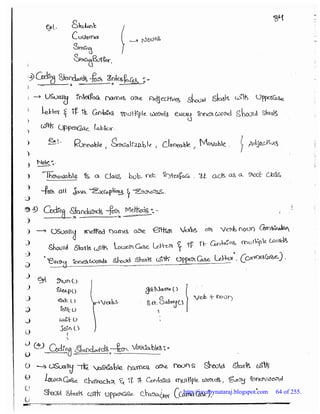 84
Ex1. Student
Customer
String
StringBuffer.
→ Nouns
2) Coding Standards for Interfaces :-
→ Usually interface names are Adjectives should starts with Uppercase
letter & if it contains multiple words every innerword should starts
with uppercase letter.
Ex:. Runnable, Serializable, Cloneable, Movable } Adjectives
Note:-
Throwable is a class but not interface. It acts as a root class
for all Java Exceptions & Errors.
3) Coding Standards for Methods :-
→ Usually method names are either Verbs or Verb noun Combination
Should Starts with LowerCase Letter & if it contains multiple words
Every innerwords should starts with UpperCase Letter. (camelCase).
Ex1 run()
sleep()
eat()
init()
wait()
join()
→ Verbs
getName()
setSalary()
Verb + noun
(4) Coding Standards for Variables :-
→ Usually the variable names are nouns should starts with
LowerCase character & if it contains multiple words, Every innerword
Should starts with uppercase character (camelCase)
http://javabynataraj.blogspot.com 64 of 255.